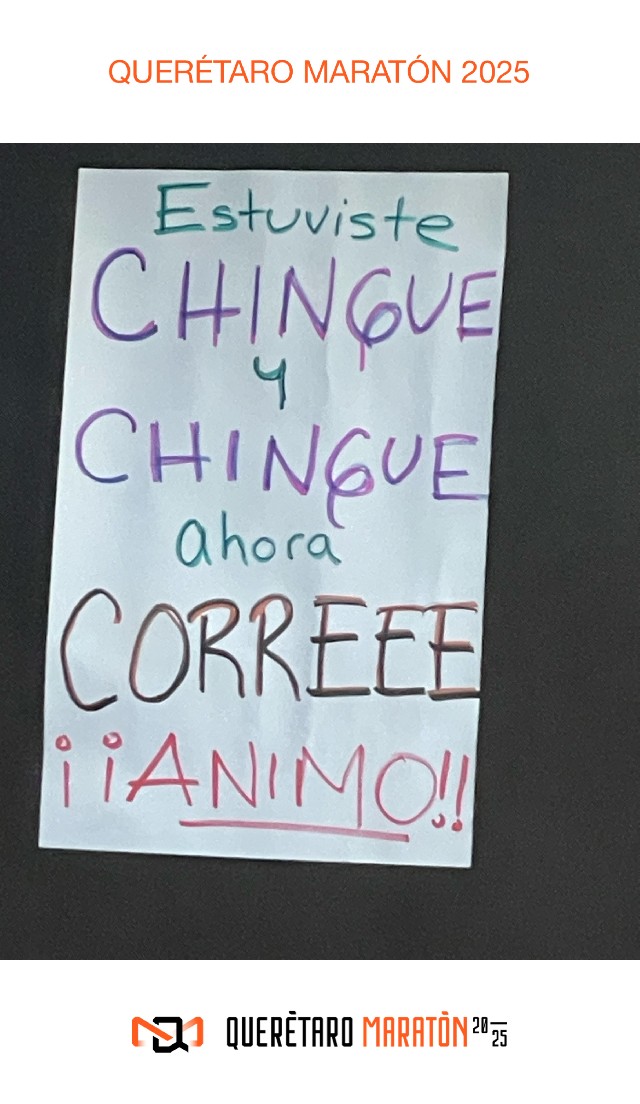 QUERÉTARO MARATÓN 2025
Estuviste
CHINGUE
y
CHINGUE
ahora
CORREEE
¡¡ANIMO!!
QUERÉTARO MARATÓN 20 25